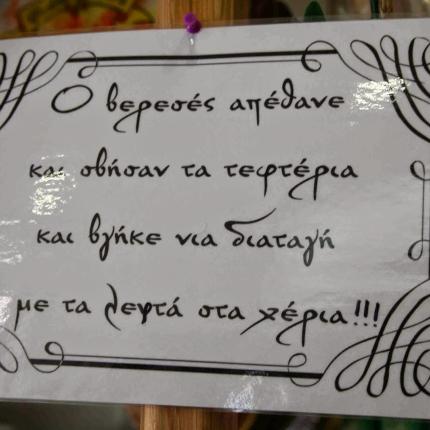 Ο βερεσές απέθανε
και σβήσαν τα τεφτέρια
και βγήκε νια διαταγή
με τα λεφτά στα χέρια!!!